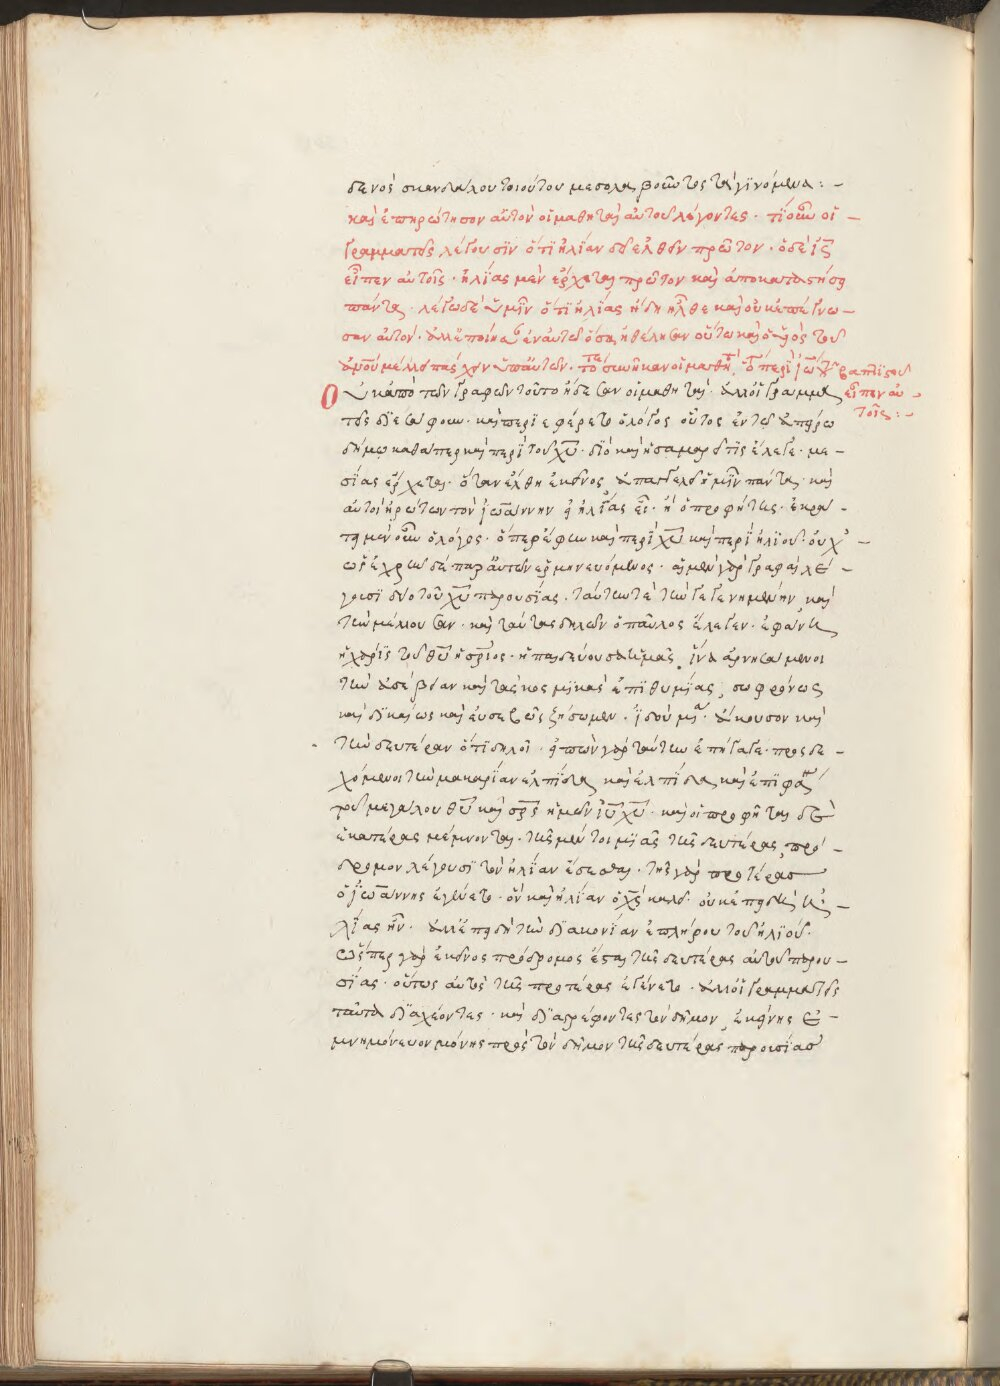 δενὸς σκανδάλου τοιούτου μεσολαβοῦντος τὰ γινόμενα : -
καὶ ἐπηρώτησον αὐτὸν οἱ μαθηταὶ αὐτοῦ λέγοντες · τί οὖν οἱ -
γραμματεῖς λέγουσϊν ὅτι ἠλίαν δεῖ ἐλθεῖν πρῶτον · ὁ δὲ ἰς
εἶπεν αὐτοῖς · ἠλίας μὲν ἔρχεται πρῶτον καὶ ἀποκαταστήσει
πάντα · λέγω δὲ ὑμῖν ὅτι ἠλίας ἤδη ἦλθε καὶ οὐκ ἐπέγνω -
σαν αὐτόν · ἀλλ' ἐποίησαν ἐν αὐτῷ ὅσα ἠθέλησαν οὕτω καὶ ὁ υἱὸς τοῦ
ἀνου μέλλει πάσχειν ὑπ' αὐτῶν · τότε συνῆκαν οἱ μαθηταὶ ὅτι περὶ ἰω τοῦ βαπτιστοῦ
εἶπεν αὐ -
τοῖς : -
Οὐκ ἀπὸ τῶν γραφῶν τοῦτο ἤδεσαν οἱ μαθηταί · ἀλλ' οἱ γραμμα
τεῖς διεσάφουν · καὶ περιεφέρετο ὁ λόγος οὗτος ἐν τῷ ἀπείρω
δήμω καθάπερ καὶ περὶ τοῦ χυ · διὸ καὶ ἡ σαμαρεῖτις ἔλεγε · με -
σίας ἔρχεται · ὅταν ἔλθη ἐκεῖνος ἀπαγγελεῖ ἡμῖν πάντα · καὶ
αὐτοὶ ἠρώτων τὸν ἰωάννην εἰ ἠλίας εἶ · ἢ ὁ προφήτης · ἐκρά -
τει μὲν οὖν ὁ λόγος · ὅπερ ἔφην καὶ περὶ χυ καὶ περὶ ἠλιού · οὐχ' -
ὡς ἐχρῆν δὲ παρ' αὐτῶν ἑρμηνευόμενος · αἱ μὲν γὰρ γραφαὶ λέ -
γουσϊ δύο τοῦ χυ παρουσίας · ταύτην τὲ τὴν γεγενημένην καὶ
τὴν μέλλουσαν · καὶ ταύτας δηλῶν ὁ παῦλος ἔλεγεν · ἐφάνη
ἡ χάρις τοῦ θυ ἡ σριος · ἡ παιδεύουσα ἡμᾶς, ἵνα ἀρνησάμενοι
τὴν ἀσέβειαν καὶ τὰς κοσμικὰς ἐπιθυμίας, σωφρόνως
καὶ δικαίως καὶ εὐσεβῶς ζήσωμεν · ἰδοὺ μία · ἄκουσον καὶ
τὴν δευτέραν ὅτι δηλοῖ · εἰπὼν γὰρ ταύτην ἐπήγαγε · προσδε -
χόμενοι τὴν μακαρίαν ἐλπίδα καὶ ἐλπίδα καὶ ἐπιφά
τοῦ μεγάλου θυ καὶ σρς ἡμῶν ἰυ χυ · καὶ οἱ προφῆται δὲ
ἑκατέρας μέμνονται · τῆς μέντοι μιᾶς τῆς δευτέρας, πρό -
δρομον λέγουσϊ τὸν ἠλίαν ἔσεσθαι · τῆς γὰρ προτέρας
ὁ ἰωάννης ἐγένετο · ὃν καὶ ἠλίαν ὁ χς καλεῖ · οὐκ ἐπειδὴ ἠ -
λίας ἦν · ἀλλ' ἐπειδὴ τὴν διακονίαν ἐπλήρου τοῦ ἠλιού ·
ὥσπερ γὰρ ἐκεῖνος πρόδρομος ἔσται τῆς δευτέρας αὐτοῦ παρου -
σίας · οὕτως αὐτὸς τῆς προτέρας ἐγένετο · ἀλλ' οἱ γραμματεῖς
ταῦτα διαχέοντες · καὶ διαστρέφοντες τὸν δῆμον, ἐκείνης ἐ -
μνημόνευον μόνης πρὸς τὸν δῆμον τῆς δευτέρας παρουσίας